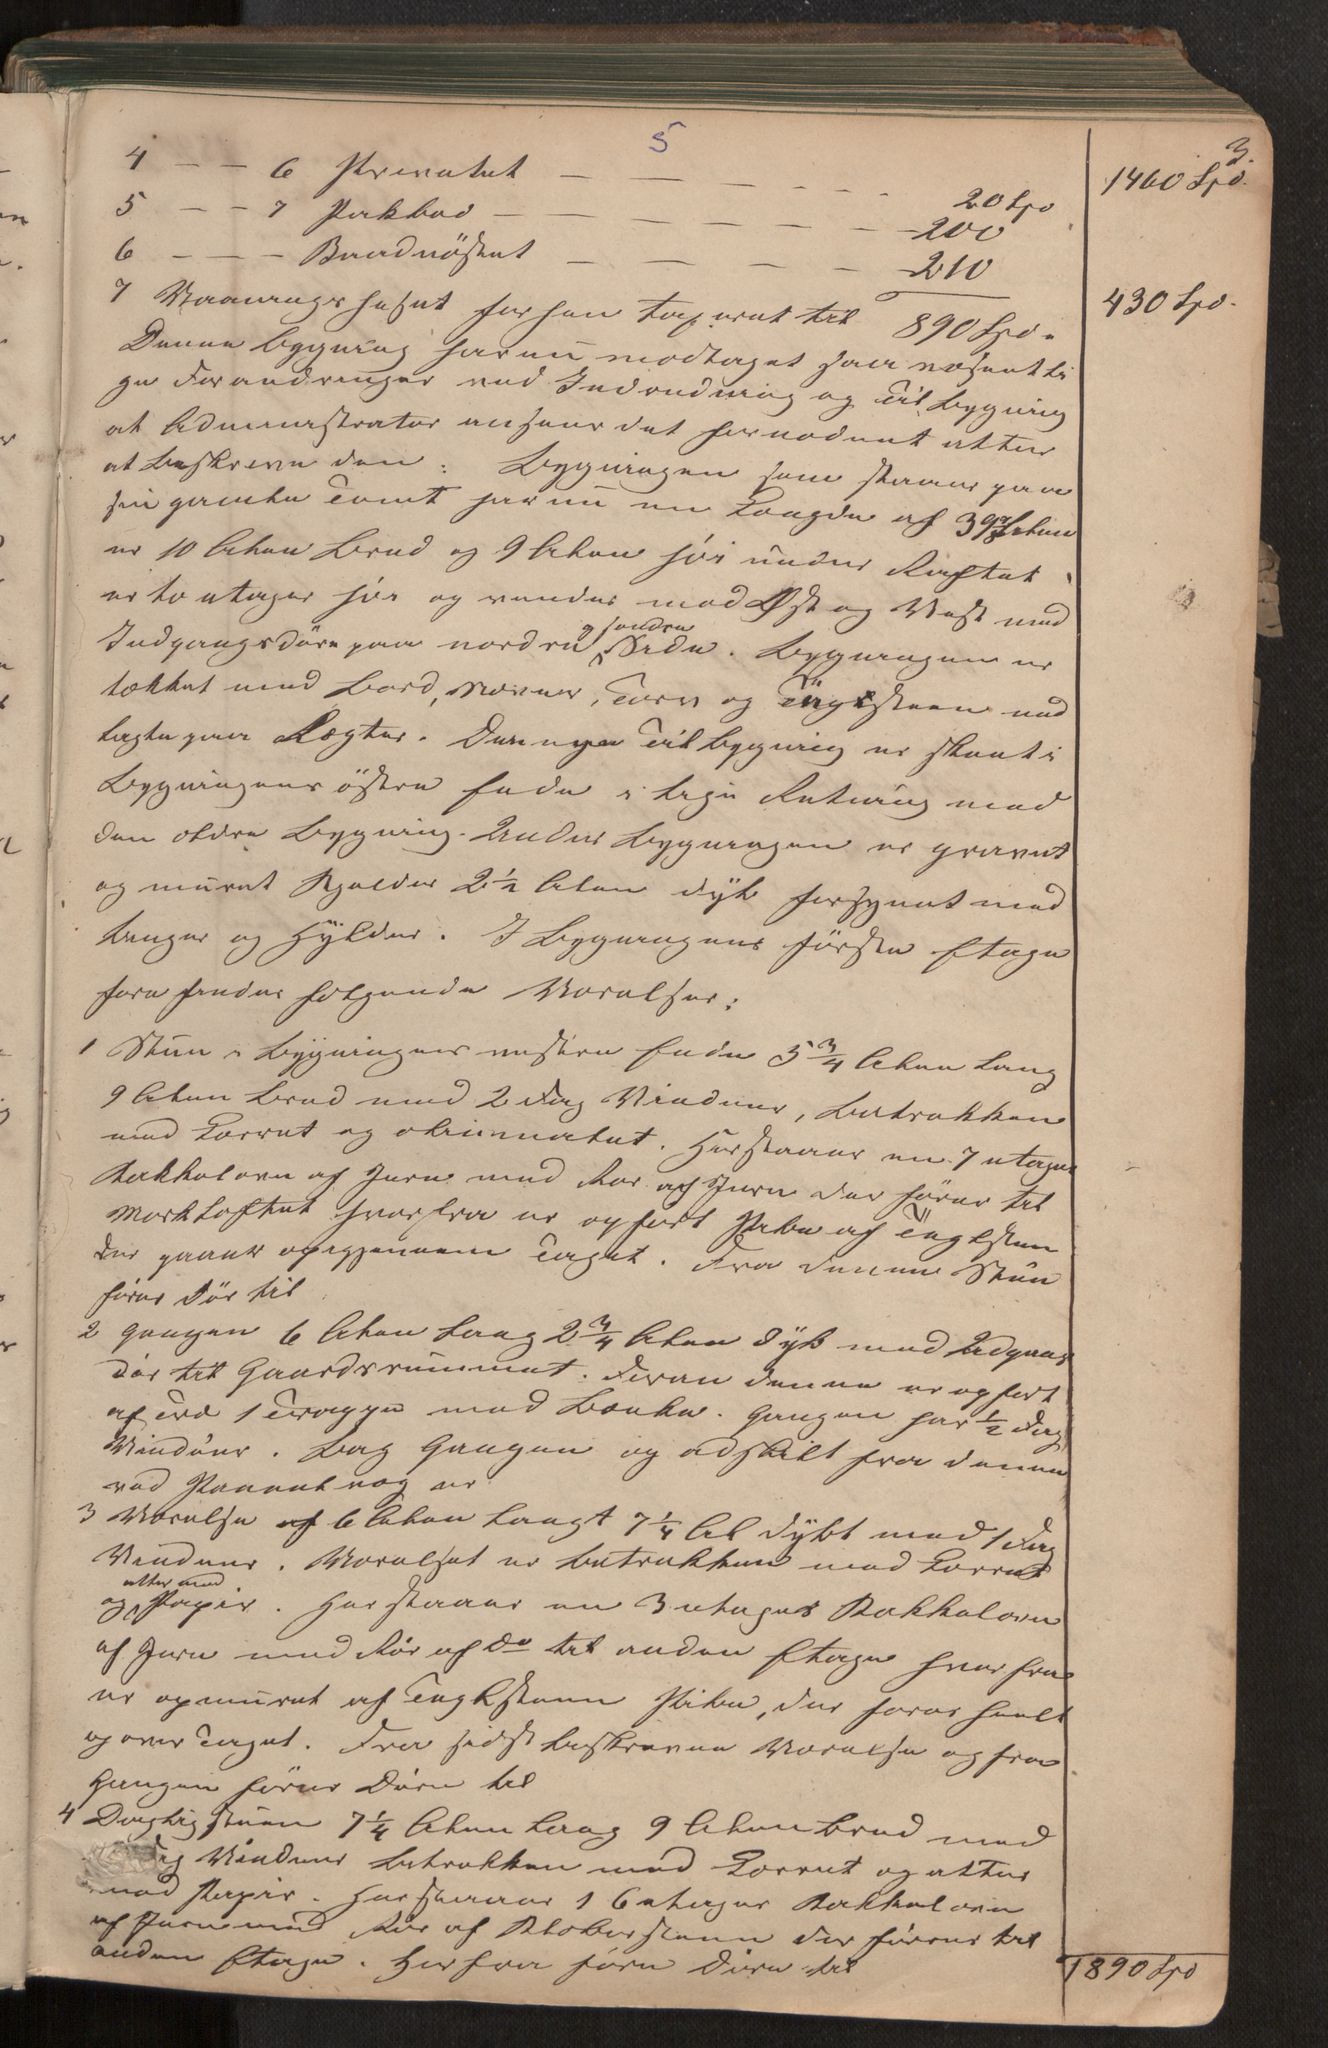 5
3.
1460 Spd.
4 — — 6 Privetet — — — — — — 20 Spd
5 — — 7 Pakbod — — — — — — 200
6 — — — Baadnöstet — — — — — 210
430 Spd.
7 Vaaningshuset forhen taxeret til 890 Spd.
Denne Bygning har nu modtaget saa væsentli
ge Forandringer ved Indredning og Tilbygning
at Administrator ansees det fornødent atter
at beskreve den: Bygningen som staaer paa
sin gamle Tomt har nu en Længde af 39 3/4 Alen
er 10 Alen bred og 9 Alen höi under Raftet
er to etager höi og vender mod Øst og Vest med
Indgangsdöre paa nordre og søndre Side. Bygningen er
tækket med Bord, Næver, Torv og Tagsteen ned
lagte paa Lægter. Den nye Tilbygning er skeet i
Bygningens östre Ende i lige Retning med
den ældre Bygning. Under Bygningen er gravet
og muret Kjelder 2 1/2 Alen dyb forsynet med
Binger og Hylder. I Bygningens förste Etage
forefindes følgende Værelser:
1 Stue i Bygningens vestre Ende 5 3/4 Alen lang
9 Alen bred med 2 Fag Vinduer, betrækken
med Lærret og oliemalet. Her staaer en 7 etages
Kakkelovn af Jern med Rør af Jern der förer til
Mørkloftet hvorfra er opført Pibe af Teglsteen
der gaaer opigjennem Taget. Fra denne Stue
förer Dör til
2 Gangen 6 Alen lang 2 3/4 Alen dyb med Udgangs
dör til Gaardsrummet. Foran denne er opført
af Træ 1 Trappe med Bænke. Gangen har 1/2 Fag
Vinduer. Bag Gangen og adskilt fra denne
ved Paneelvæg er
3 Værelse af 6 Alen Langt 7 1/4 Al dybt med 1 Fag
Vinduer. Værelset er betrækken med Lærret
og atter med Papir. Her staaer en 3 etages Kakkelovn
af Jern med Rör af Do til anden Etage hvorfra
er opmuret af Teglsteen Pibe, der fører heelt
op over Taget. Fra sidst beskrevne Værelse og fra
Gangen förer Döre til
4 Dagligstuen 7 1/4 Alen lang 9 Alen bred med
Fag Vinduer betrækken med Lærret og atter
med Papir. Her staaer 1 6 etages Kakkelovn
af Jern med Rör af Klebersteen der förer til
anden Etage. Herfra före Döre til
1890 Spd